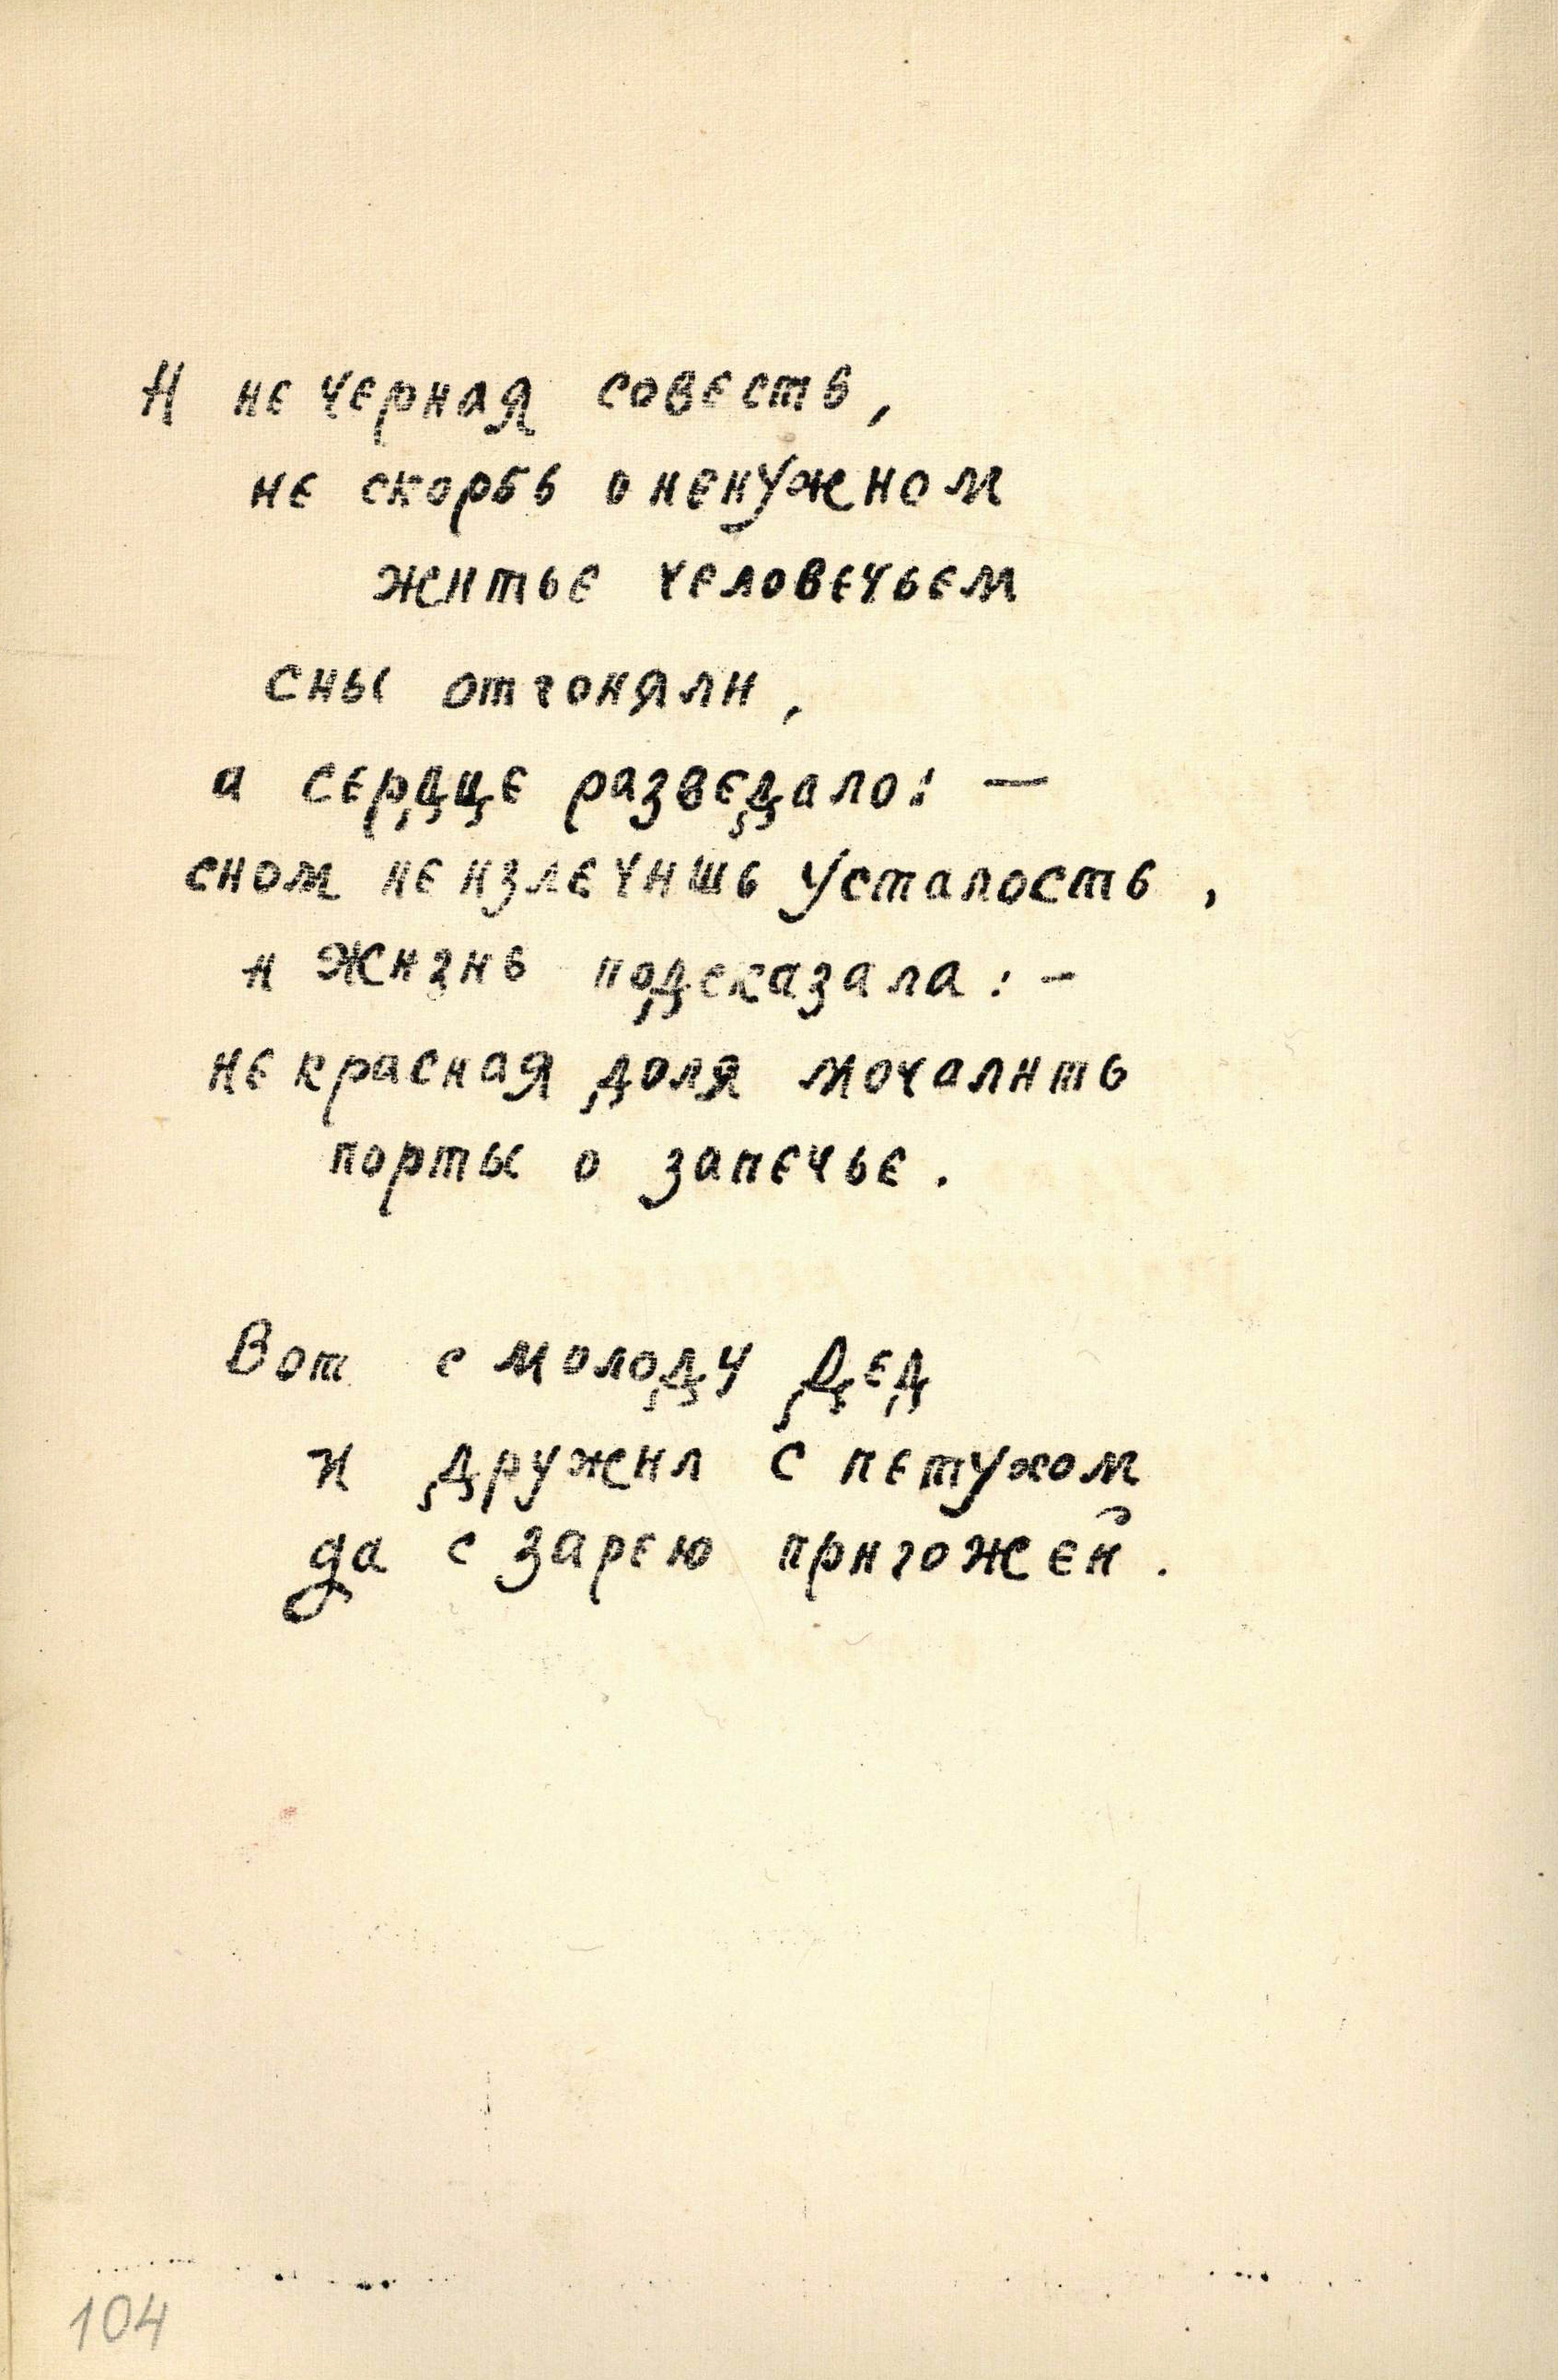 И не черная совесть,
не скорбь о ненужном
житье человечьем
сны отгоняли,
а сердце разведало: —
сном не излечишь усталость,
и жизнь подсказала: -
не красная доля мочалить
порты о запечье.
Вот с молоду Дед
и дружил с петухом
да с зарею пригожей.
104